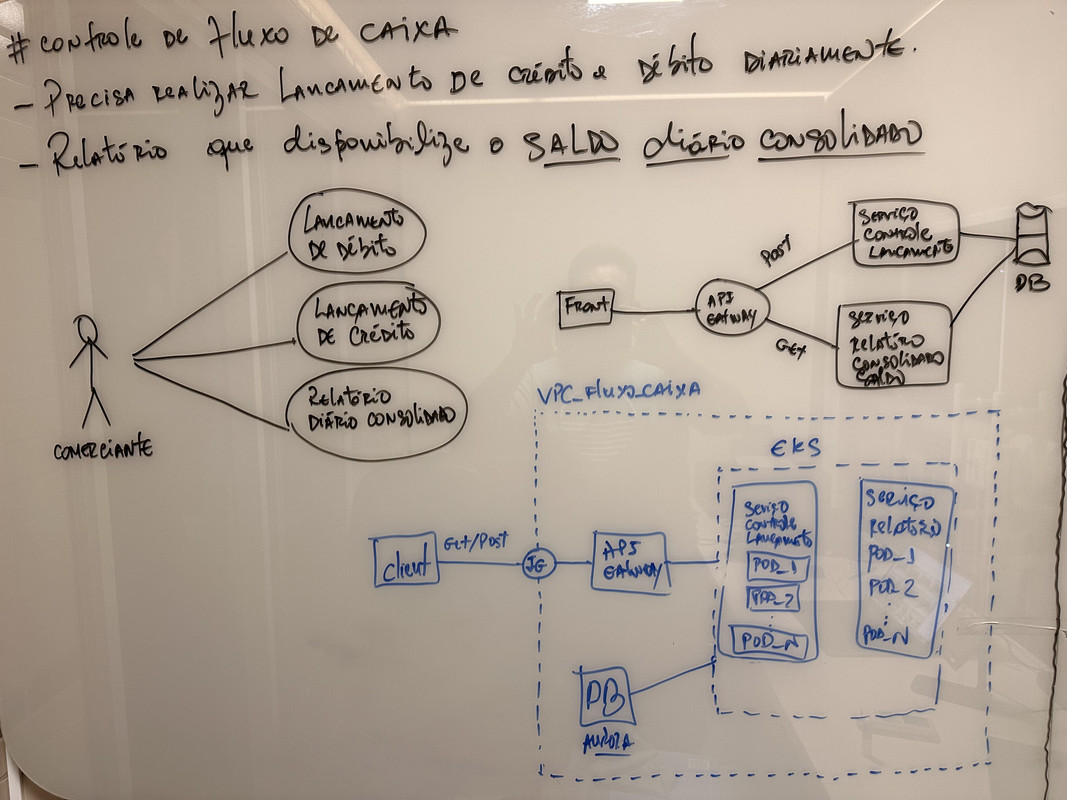 # CONTROLE DE FLUXO DE CAIXA
- PRECISA REALIZAR LANCAMENTO DE CRÉDITO e DÉBITO DIARIAMENTE.
- RELATÓRIO que disponibilize o SALDO diário CONSOLIDADO
LANCAMENTO
DE DÉBITO
LANÇAMENTO
DE CRÉDITO
RELATÓRIO
DIÁRIO CONSOLIDADO
COMERCIANTE
FRONT
API
GATWAY
POST
GET
SERVIÇO
CONTROLE
LANCAMENTO
SERVIÇO
RELATÓRIO
CONSOLIDADO
SALDO
DB
VPC_FLUXO_CAIXA
EKS
client
Get/Post
IG
API
GATWAY
SERVIÇO
CONTROLE
LANÇAMENTO
POD_1
POD_2
POD_N
SERVIÇO
RELATÓRIO
POD_1
POD_2
POD_N
DB
AURORA